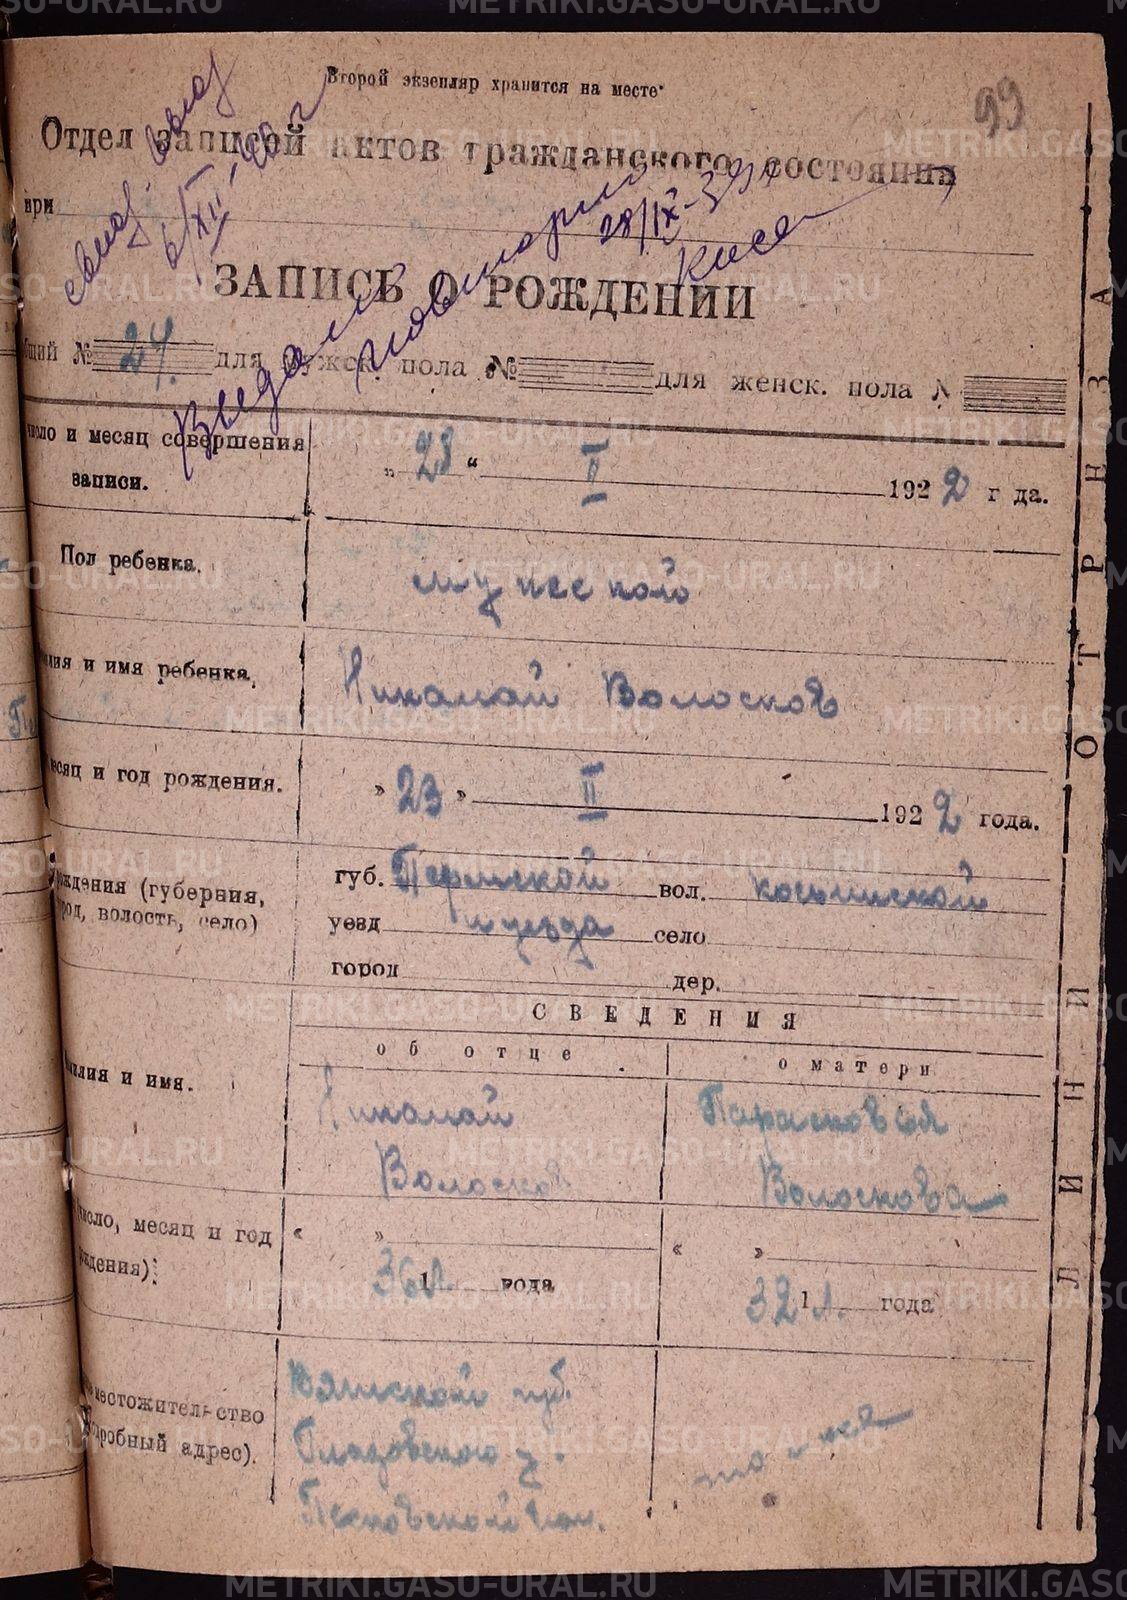 Второй экземпляр хранится на месте.
99
Отдел записей актов гражданского состояния
при
6/XII-40 г
28/IX-39
ЗАПИСЬ О РОЖДЕНИИ
бщий № 24. для мужск. пола № для женск. пола №
число и месяц совершения записи. „ 28 “ II 1922 года.
Пол ребенка. мужской
илия и имя ребенка. Николай Волосков
есяц и год рождения. „ 23 „ II 1922 года.
рождения (губерния, город, волость, село)
губ. Пермской вол. косьинской
уезд и уезда село
город дер.
СВЕДЕНИЯ
об отце о матери
милия и имя. Николай Волосков Парасковья Волоскова
число, месяц и год рождения) « „ 36 1 л. года « „ 32 1 л. года
местожительство (подробный адрес).
Вятской губ.
Глазовского у.
Песковской вол.
то же
ЛИНИЯ ОТРЕЗА
METRIKI.GASO-URAL.RU